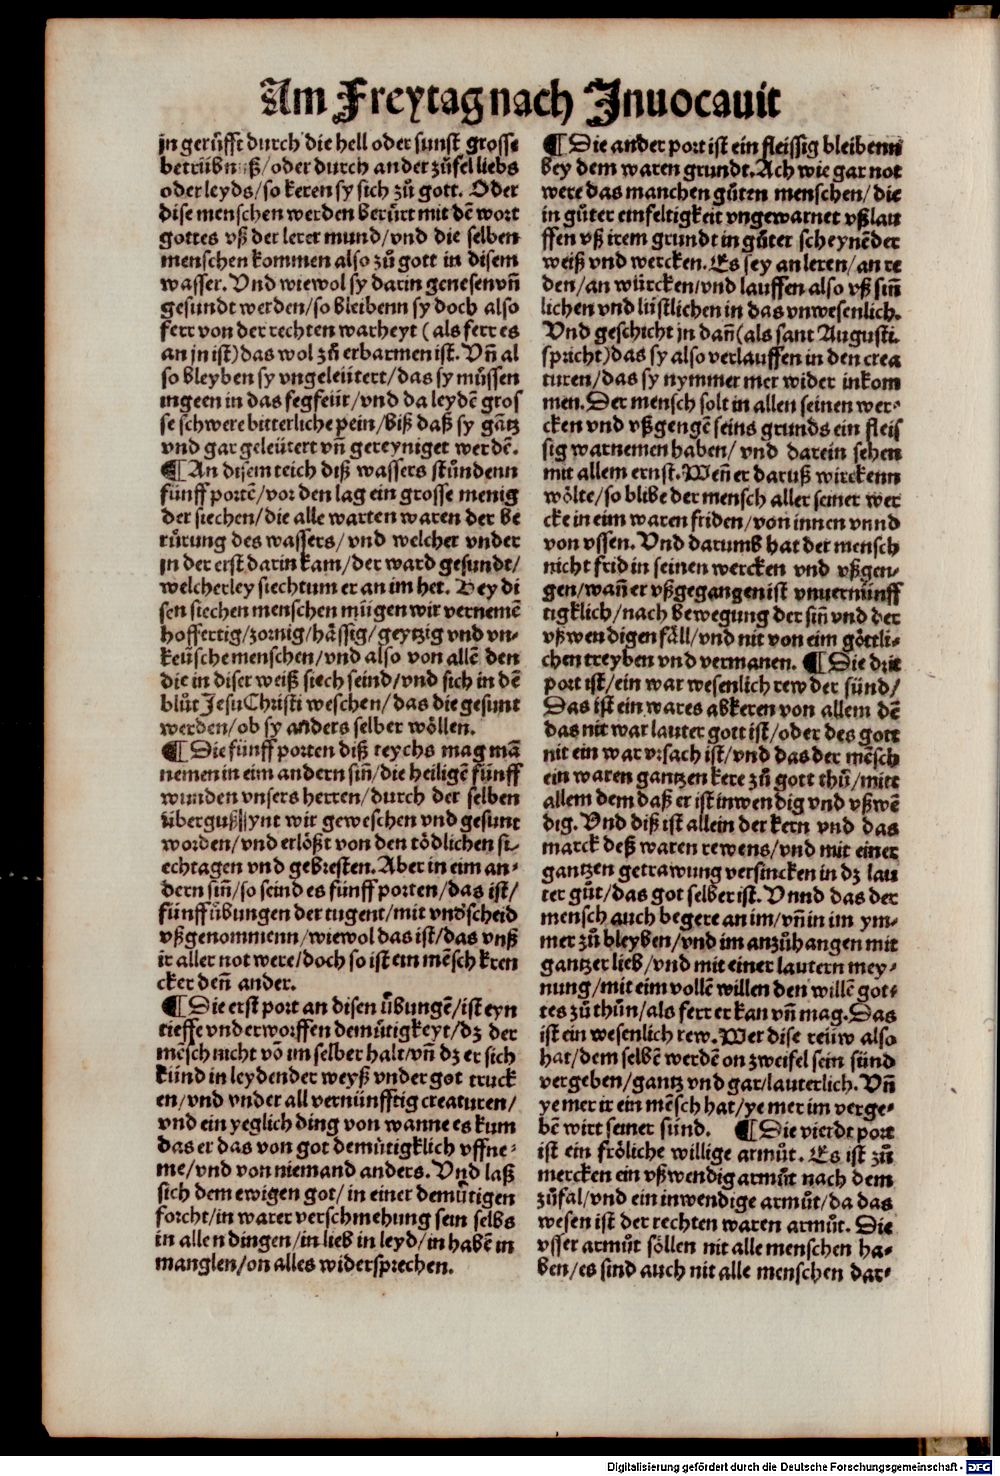 Am Freytag nach Inuocauit
jn gerůfft durch die hell oder sunst grosse
betrübnuß/oder durch ander zůfel liebs
oder leyds/so keren sy sich zů gott. Oder
dise menschen werden berůrt mit dē wort
gottes vß der lerer mund/vnd die selben
menschen kommen also zů gott in disem
wasser. Vnd wiewol sy darin genesen vñ
gesundt werden/so bleibenn sy doch also
ferr von der rechten warheyt (als ferr es
an jn ist) das wol zů erbarmen ist. Vñ al
so bleyben sy vngeleütert/das sy müssen
ingeen in das fegfeür/vnd da leydē gros
se schwere bitterliche pein/biß daß sy gātz
vnd gar geleütert vñ gereyniget werdē.
¶ An disem teich diß wassers stůndenn
fünff portē/vor den lag ein grosse menig
der siechen/die alle warten waren der be
růrung des wassers/vnd welcher vnder
jn der erst darin kam/der ward gesundt/
welcherley siechtum er an im het. Bey di
sen siechen menschen mügen wir vernemē
hoffertig/zornig/hässig/geytzig vnd vn-
keüsche menschen/vnd also von allē den
die in diser weiß siech seind/vnd sich in dē
blůt Jesu Christi weschen/das die gesunt
werden/ob sy anders selber wöllen.
¶ Die fünff porten diß teychs mag mā
nemen in eim andern siñ/die heiligē fünff
wunden vnsers herren/durch der selben
überguß synt wir geweschen vnd gesunt
worden/vnd erlößt von den tödlichen si-
echtagen vnd gebresten. Aber in eim an-
dern siñ/so seind es fünff porten/das ist/
fünff übungen der tugent/mit vnd'scheid
vßgenommenn/wiewol das ist/das vnß
ir aller not were/doch so ist ein mēsch kren
cker deñ ander.
¶ Die erst port an disen übungē/ist eyn
tieffe vnd erworffen demůtigkeyt/dz der
mēsch nicht vō im selber halt/vñ dz er sich
künd in leydender weyß vnder got truck
en/vnd vnder all vernünfftig creaturen/
vnd ein yeglich ding von wanne es kum
das er das von got demůtigklich vffne-
me/vnd von niemand anders. Vnd laß
sich dem ewigen got/in einer demůtigen
forcht/in warer verschmehung sein selbs
in allen dingen/in lieb in leyd/in habē in
manglen/on alles widersprechen.
¶ Die ander port ist ein fleissig bleibenn
bey dem waren grundt. Ach wie gar not
were das manchen gůten menschen/die
in gůter einfeltigkeit vngewarnet vßlau
ffen vß irem grundt in gůter scheynēder
weiß vnd wercken. Es sey an leren/an re
den/an würcken/vnd lauffen also vß siñ
lichen vnd lüstlichen in das vnwesenlich.
Vnd geschicht jn dañ (als sant Augusti.
spricht) das sy also verlauffen in den crea
turen/das sy nymmer mer wider inkom
men. Der mensch solt in allen seinen wer-
cken vnd vßgengē seins grunds ein fleis
sig warnemen haben/ vnd darein sehen
mit allem ernst. Weñ er daruß wirckenn
wölte/so blibe der mensch aller seiner wer
cke in eim waren friden/von innen vnnd
von vssen. Vnd darumb hat der mensch
nicht frid in seinen wercken vnd vßgen-
gen/wañ er vßgegangen ist vnuernünff
tigklich/nach bewegung der siñ vnd der
vßwendigen fäll/vnd nit von eim göttli-
chen treyben vnd vermanen. ¶ Die drit
port ist/ein war wesenlich rew der sünd/
Das ist ein wares abkeren von allem dē
das nit war lauter gott ist/oder des gott
nit ein war vrsach ist/vnd das der mēsch
ein waren gantzen kere zů gott thů/mitt
allem dem daß er ist inwendig vnd vßwē
dig. Vnd diß ist allein der kern vnd das
marck deß waren rewens/vnd mit einer
gantzen getrawung versincken in dz lau
ter gůt/das got selber ist. Vnnd das der
mensch auch begere an im/vñ in im ym-
mer zů bleyben/vnd im anzůhangen mit
gantzer lieb/vnd mit einer lautern mey-
nung/mit eim vollē willen den willē got-
tes zů thůn/als ferr er kan vñ mag. Das
ist ein wesenlich rew. Wer dise reüw also
hat/dem selbē werdē on zweifel sein sünd
vergeben/gantz vnd gar/lauterlich. Vñ
ye mer ir ein mēsch hat/ye mer im verge-
bē wirt seiner sünd. ¶ Die vierdt port
ist ein fröliche willige armůt. Es ist zů
mercken ein vßwendig armůt nach dem
zůfal/vnd ein inwendige armůt/da das
wesen ist der rechten waren armůt. Die
vsser armůt söllen nit alle menschen ha-
ben/es sind auch nit alle menschen dar-
Digitalisierung gefördert durch die Deutsche Forschungsgemeinschaft - DFG